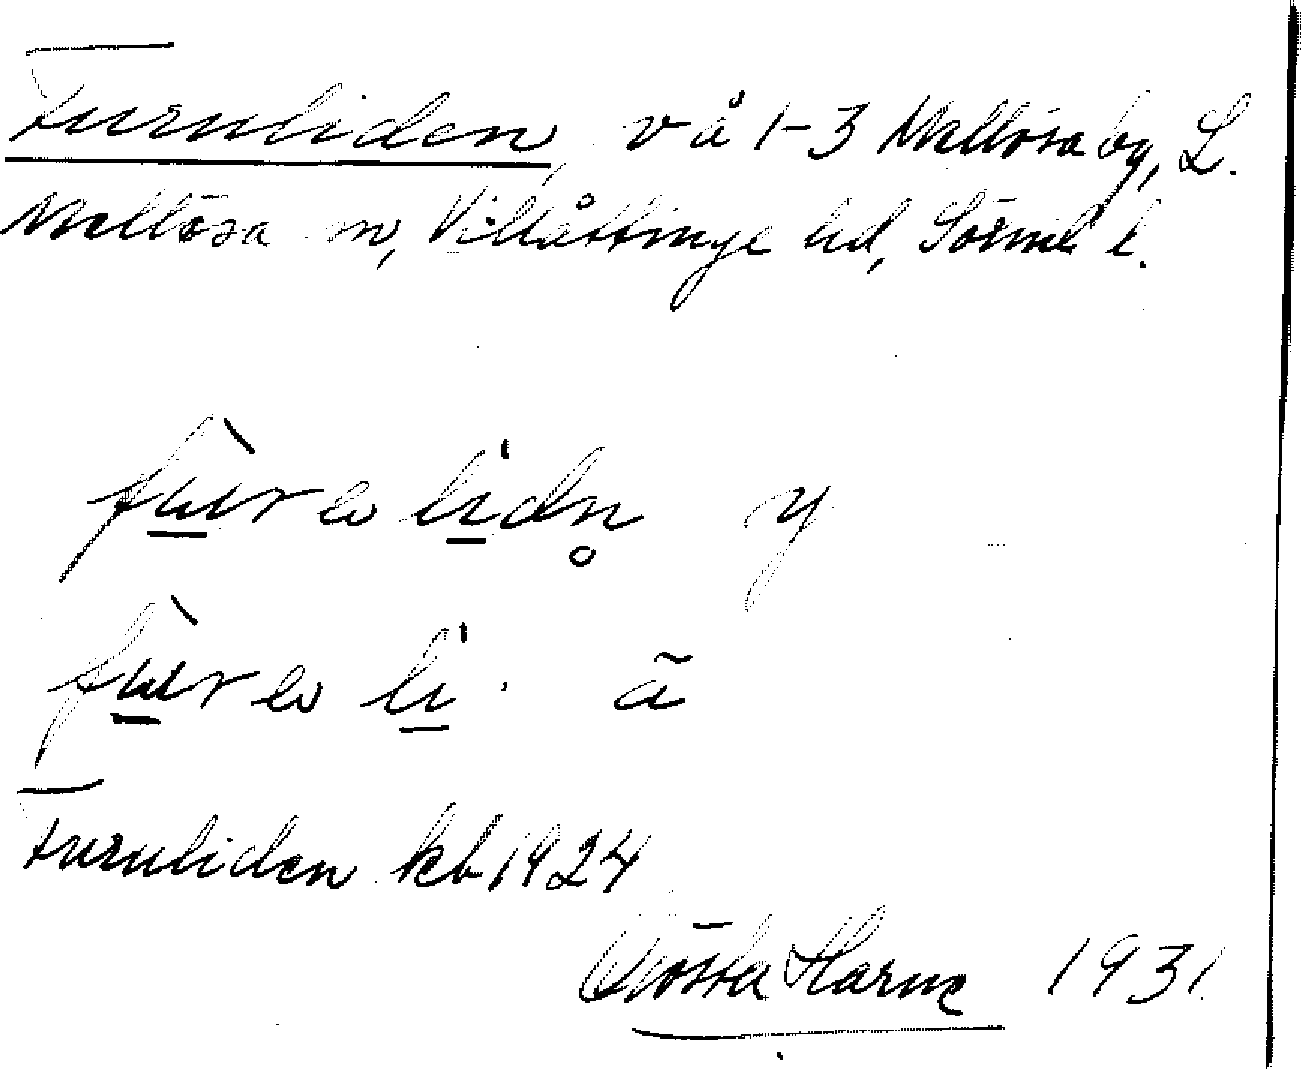 Furuliden, vå 1-3 Mellösa by, L.
Mellösa sn, Villåttinge hd, Sörml l.
fùrelidn̥ y
fùreli. ã
Furuliden kb 1924
Gösta Harne 1931